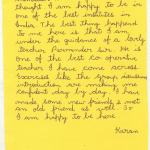 thought I am happy to be in
one of the best institutes in
India. The best thing happened
to me here is that I am
under the guidance of a lovely
teacher Parminder sir. He is
one of the best co operative
teacher I have come across
Exercises like the group,
introduction are making me
confident day by day. I have
made some new friends & met
an old friend as well. So
I am happy to be here
Karan